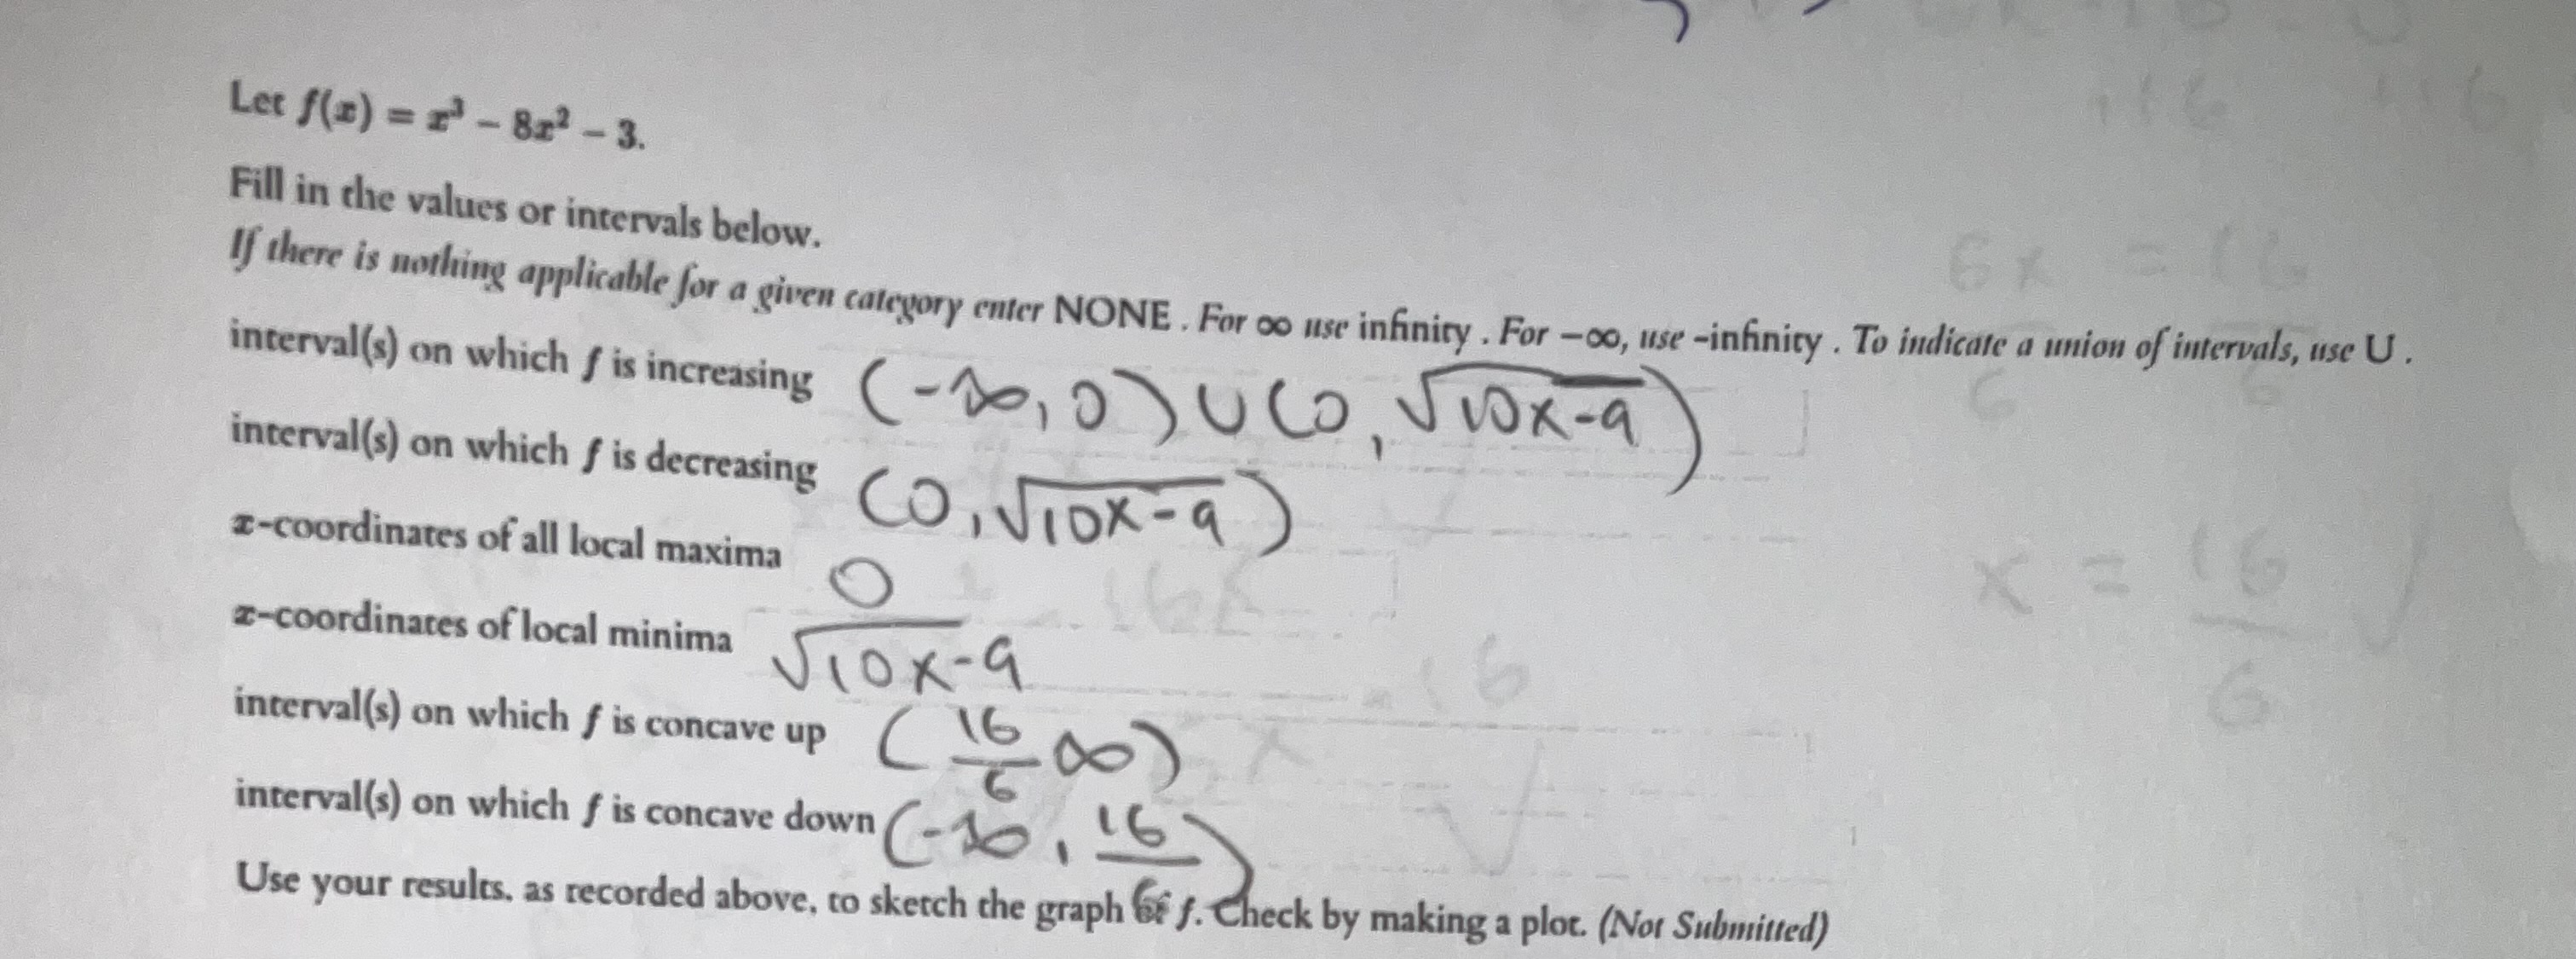 Let f(x) = x³ − 8x² − 3.
Fill in the values or intervals below.
If there is nothing applicable for a given category enter NONE . For ∞ use infinity . For −∞, use -infinity . To indicate a union of intervals, use U .
interval(s) on which f is increasing (-∞, 0) ∪ (0, √(10x-9))
interval(s) on which f is decreasing (0, √(10x-9))
x-coordinates of all local maxima 0
x-coordinates of local minima √10x-9
interval(s) on which f is concave up (16/6 ∞)
interval(s) on which f is concave down (-∞, 16/6)
Use your results, as recorded above, to sketch the graph of f. Check by making a plot. (Not Submitted)
6x = 16
6 6
x = 16/6